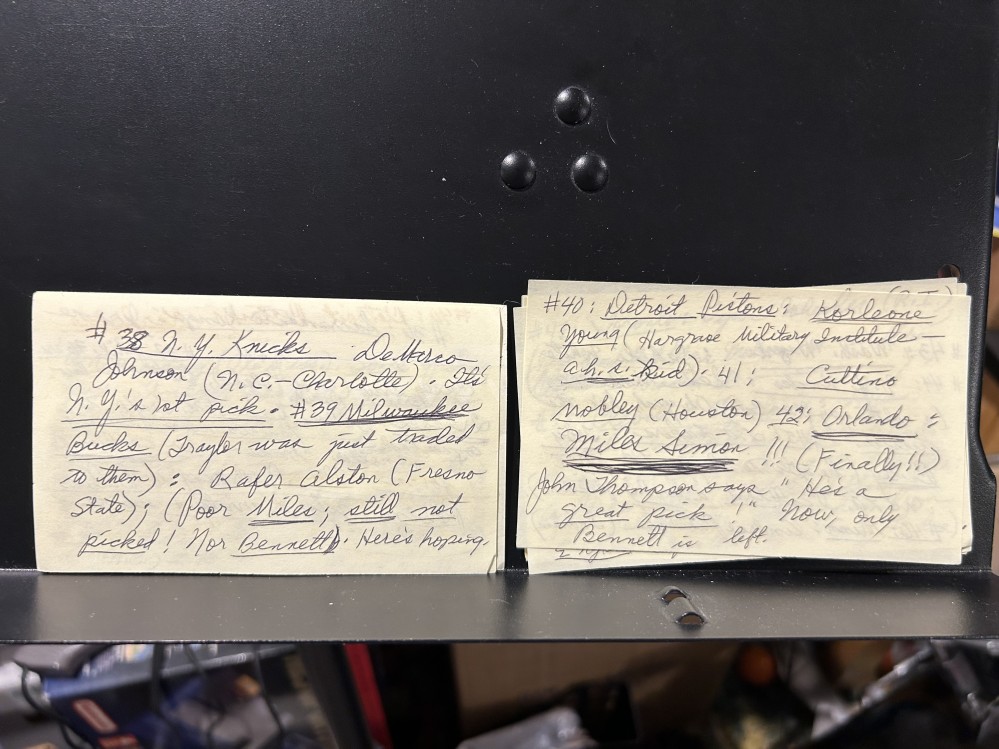 # 38 N.Y. Knicks DeMarco
Johnson (N.C.-Charlotte). It's
N.Y.'s 1st pick. #39 Milwaukee
Bucks (Traylor was just traded
to them): Rafer Alston (Fresno
State); (Poor Miles; still not
picked! Nor Bennett). Here's hoping.
#40: Detroit Pistons: Korleone
Young (Hargrave Military Institute –
a h.s. kid). 41: Cuttino
Mobley (Houston) 42: Orlando:
Miles Simon !!! (Finally!!)
John Thompson says "He's a
great pick!" Now, only
Bennett is left.